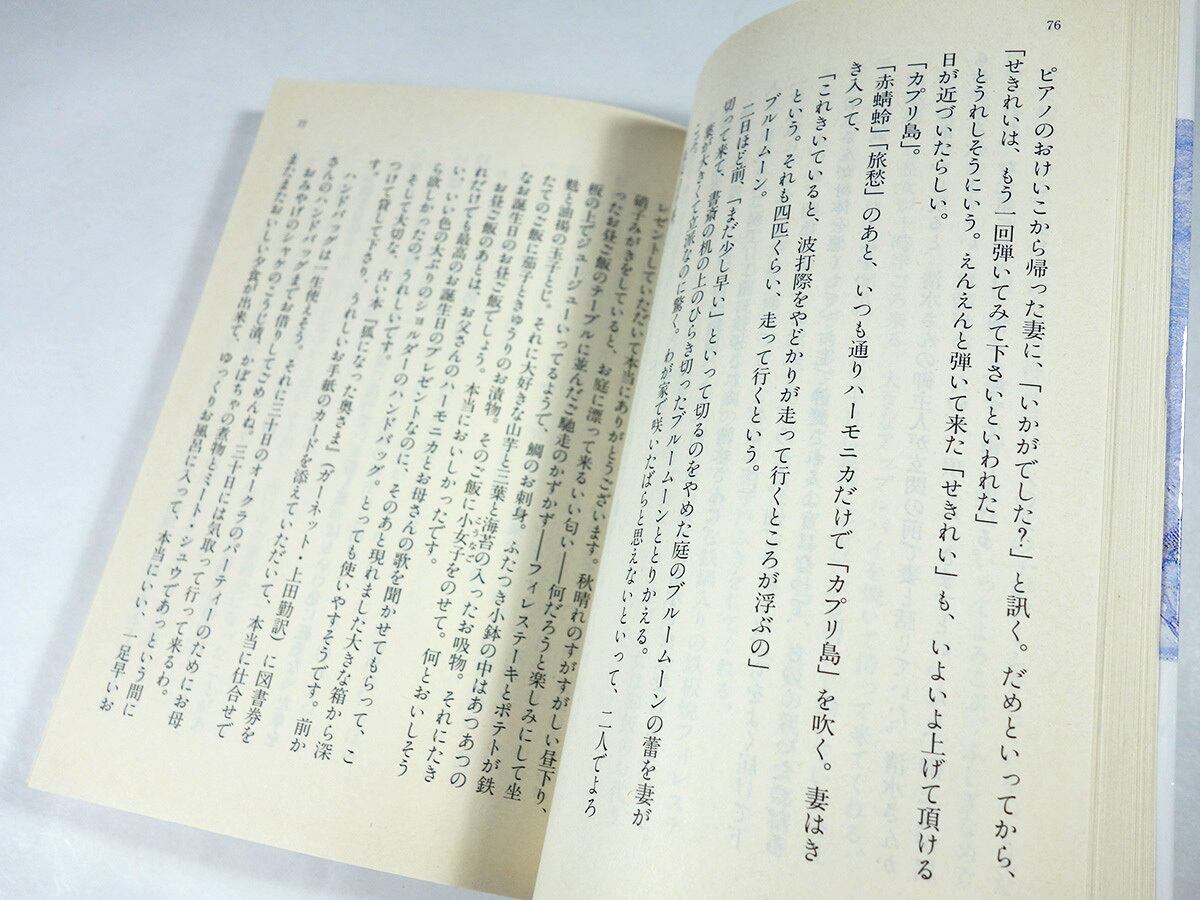 76
ピアノのおけいこから帰った妻に、「いかがでした?」と訊く。だめといってから、
「せきれいは、もう一回弾いてみて下さいといわれた」
とうれしそうにいう。えんえんと弾いて来た「せきれい」も、いよいよ上げて頂ける
日が近づいたらしい。
「カプリ島」。
「赤蜻蛉」「旅愁」のあと、いつも通りハーモニカだけで「カプリ島」を吹く。妻はき
き入って、
「これきいていると、波打際をやどかりが走って行くところが浮ぶの」
という。それも四匹くらい、走って行くという。
ブルームーン。
二日ほど前、「まだ少し早い」といって切るのをやめた庭のブルームーンの蕾を妻が
切って来て、書斎の机の上のひらき切ったブルームーンととりかえる。
葉が大きくて立派なのに驚く。わが家で咲いたばらと思えないといって、二人でよろ
こる。
77
レゼントしていただいて本当にありがとうございます。秋晴れのすがすがしい昼下り、
硝子みがきをしていると、お庭に漂って来るいい匂い――何だろうと楽しみにして坐
ったお昼ご飯のテーブルに並んだご馳走のかずかず――フィレステーキとポテトが鉄
板の上でジュージューいってるようで、鯛のお刺身。ふたつき小鉢の中はあつあつの
麩と油揚の玉子とじ。それに大好きな山芋と三葉と海苔の入ったお吸物。それにたき
たてのご飯に茄子ときゅうりのお漬物。そのご飯に小女子をのせて。何とおいしそう
こうなご
なお誕生日のお昼ご飯でしょう。本当においしかったてす。
お昼ご飯のあとは、お父さんのハーモニカとお母さんの歌を聞かせてもらって、こ
れだけでも最高のお誕生日のプレゼントなのに、そのあと現れました大きな箱から深
い、いい色の大ぶりのショルダーのハンドバッグ。とっても使いやすそうです。前か
ら欲しかったの。うれしいです。
そして大切な、古い本『狐になった奥さま』(ガーネット・上田勤訳)に図書券を
つけて貸して下さり、うれしい。お手紙のカードを添えていただいて、本当に仕合せで
す。
ハンドバッグは一生使えそう。それに三十日のオークラのパーティーのためにお母
さんのハンドバッグまでお借りしてごめんね。三十日には気取って行って来るわ。
おみやげのシャケのこうじ漬、かぼちゃの煮物とミート・シュウであっという間に
またまたおいしい夕食が出来て、ゆっくりお風呂に入って、本当にいい、一足早いお